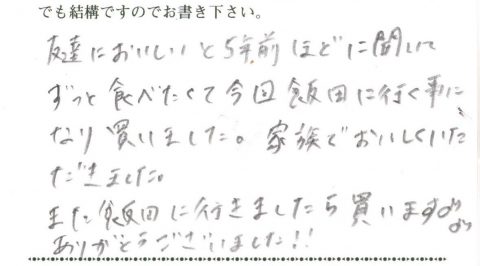 でも結構ですのでお書き下さい。
友達においしいと5年前ほどに聞いて
ずっと食べたくて今回飯田に行く事に
なり買いました。家族でおいしくいた
だきました。
また飯田に行きましたら買いますね
ありがとうございました!!